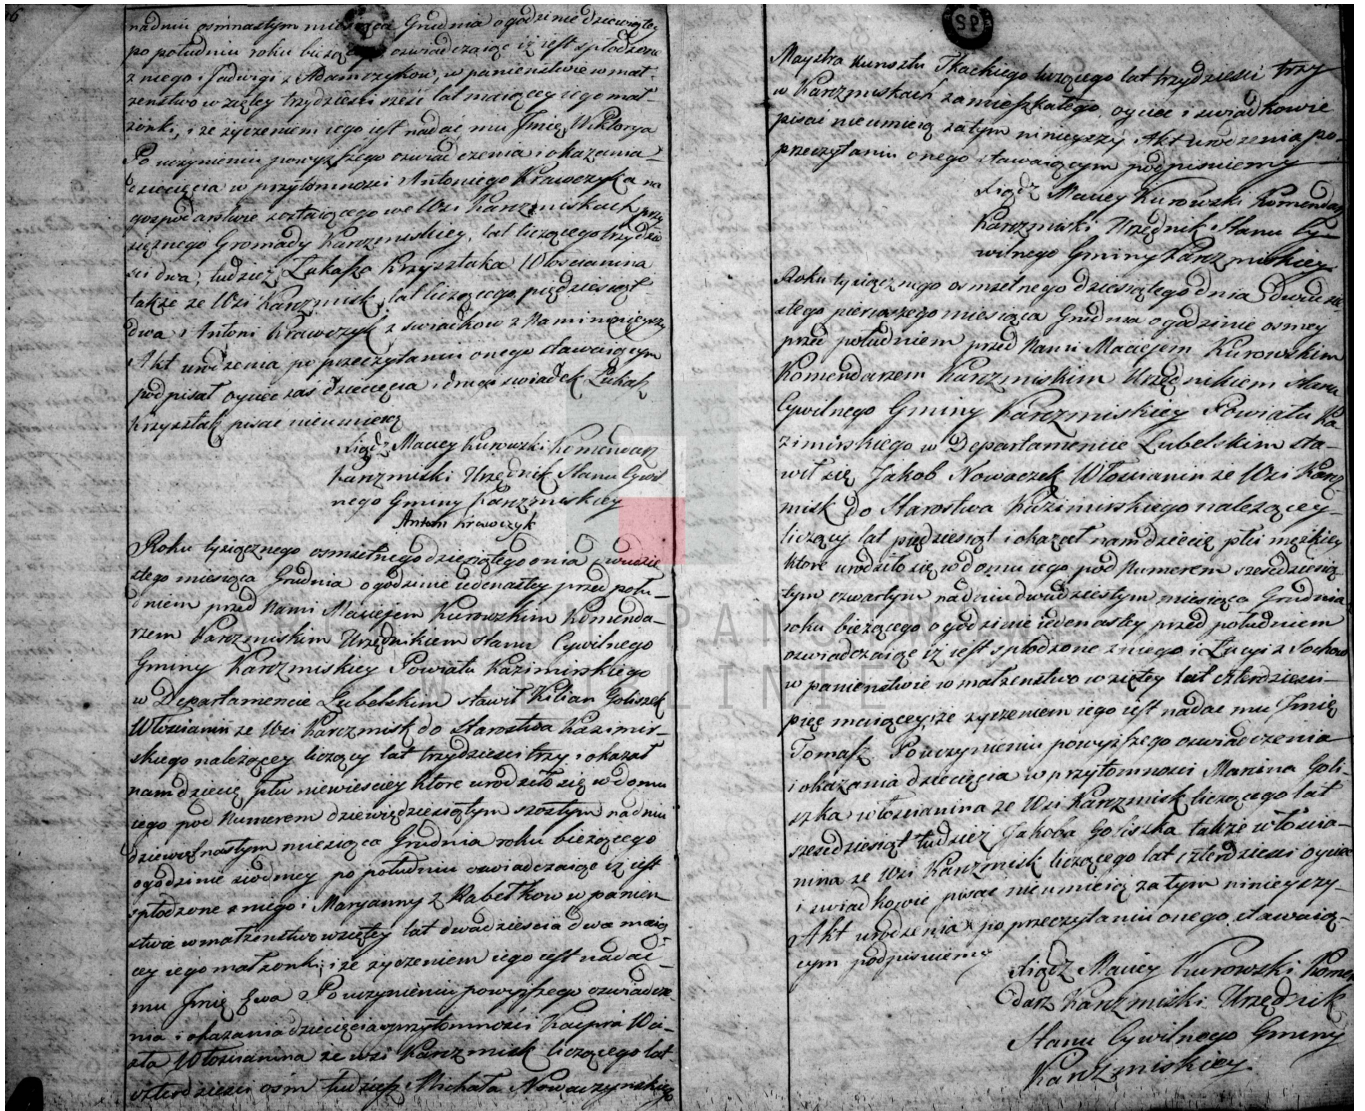 nadniu osmnastym miesiąca Grudnia o godzinie dziewiątey
po południu roku bieżącego oswiadczaiąc iż iest spłodzone
z niego i Jadwigi z Adamczykow, w panienstwie w mał-
żenstwo wziętey trzydzieści sześć lat maiącey iego mał-
żonki, i że życzeniem iego iest nadać mu Jmię Wiktorya
Po uczynieniu powyższego oswiadczenia i okazania
dziecięcia w przytomności Antoniego Krawczyka na
gospodarstwie zostaiącego we Wsi Karczmiskach przy
sięznego Gromady Karczmiskiey, lat liczącego trzydzie
ści dwa, tudzież Łukasza Krzysztaka Włościanina
także ze Wsi Karczmisk, lat liczącego pięćdziesiąt
dwa i Antoni Krawczyk z swiadkow z Nami ninieyszy
Akt urodzenia po przeczytaniu onego stawaiącym
podpisał oyciec zaś dziecięcia i drugi swiadek Łukasz
Krzysztak pisać nieumieią
Xiądz Maciey Kurowski Komendarz
Karczmiski Urzędnik Stanu Cywil
nego Gminy Karczmiskiey
Antoni Krawczyk
Roku tysiącznego osmsetnego dziesiątego dnia dwudzie
stego miesiąca Grudnia o godzinie iedenastey przed połu-
dniem przed Nami Macieiem Kurowskim Komenda-
rzem Karczmiskim Urzędnikiem Stanu Cywilnego
Gminy Karczmiskiey Powiatu Kazimirskiego
w Departamencie Lubelskim stawił Kilian Goliszek
Włościanin ze Wsi Karczmisk do Starostwa Kazimir-
skiego należącey liczący lat trzydzieści trzy i okazał
nam dziecię płci niewieściey które urodziło się w domu
iego pod Numerem dziewięćdziesiątym szostym nadniu
dziewiętnastym miesiąca Grudnia roku bieżącego
o godzinie siodmey po południu oswiadczaiąc iż iest
spłodzone z niego i Maryanny z Rabetkow w panien
stwie w małżenstwo wziętey lat dwadzieścia dwa maią
cey iego małżonki; i że życzeniem iego iest nadać
mu Jmię Ewa Po uczynieniu powyższego oswiadcze-
nia i okazania dziecięcia w przytomności Kacpra Woi-
sta Włościanina ze wsi Karczmisk liczącego lat
czterdzieści osm tudzież Michała Nowaczynskiego
SP
Maystra kunsztu Tkackiego liczącego lat trzydzieści trzy
w Karczmiskach zamieszkałego, oyciec i swiadkowie
pisać nieumieią zatym ninieyszy Akt urodzenia po
przeczytaniu onego stawaiącym podpisuiemy
Xiądz Maciey Kurowski Komendarz
Karczmiski Urzędnik Stanu Cy-
wilnego Gminy Karczmiskiey
Roku tysiącznego osmsetnego dziesiątego dnia dwudzie
stego pierwszego miesiąca Grudnia o godzinie osmey
przed południem przed Nami Macieiem Kurowskim
Komendarzem Karczmiskim Urzędnikiem Stanu
Cywilnego Gminy Karczmiskiey Powiatu Ka
zimirskiego w Departamencie Lubelskim sta-
wił się Jakob Nowaczek Włościanin ze Wsi Karcz-
misk do Starostwa Kazimirskiego należącey
liczący lat pięćdziesiąt i okazał nam dziecię płci męskiey
które urodziło się w domu iego pod Numerem sześćdziesią
tym czwartym nadniu dwudziestym miesiąca Grudnia
roku bieżącego o godzinie iedenastey przed południem
oswiadczaiąc iż iest spłodzone z niego i Łucyi z Sochow
w panienstwie w małżenstwo wziętey lat czterdzieści
pięć maiącey; że życzeniem iego iest nadać mu Jmię
Tomasz Po uczynieniu powyższego oswiadczenia
i okazania dziecięcia w przytomności Marcina Goli-
szka włościanina ze Wsi Karczmisk liczącego lat
sześćdziesiąt tudzież Jakoba Goliszka także włościa-
nina ze Wsi Karczmisk liczącego lat czterdzieści oyciec
i swiadkowie pisać nieumieią zatym ninieyszy
Akt urodzenia po przeczytaniu onego stawaią-
cym podpisuiemy
Xiądz Maciey Kurowski Komen
darz Karczmiski Urzędnik
Stanu Cywilnego Gminy
Karczmiskiey